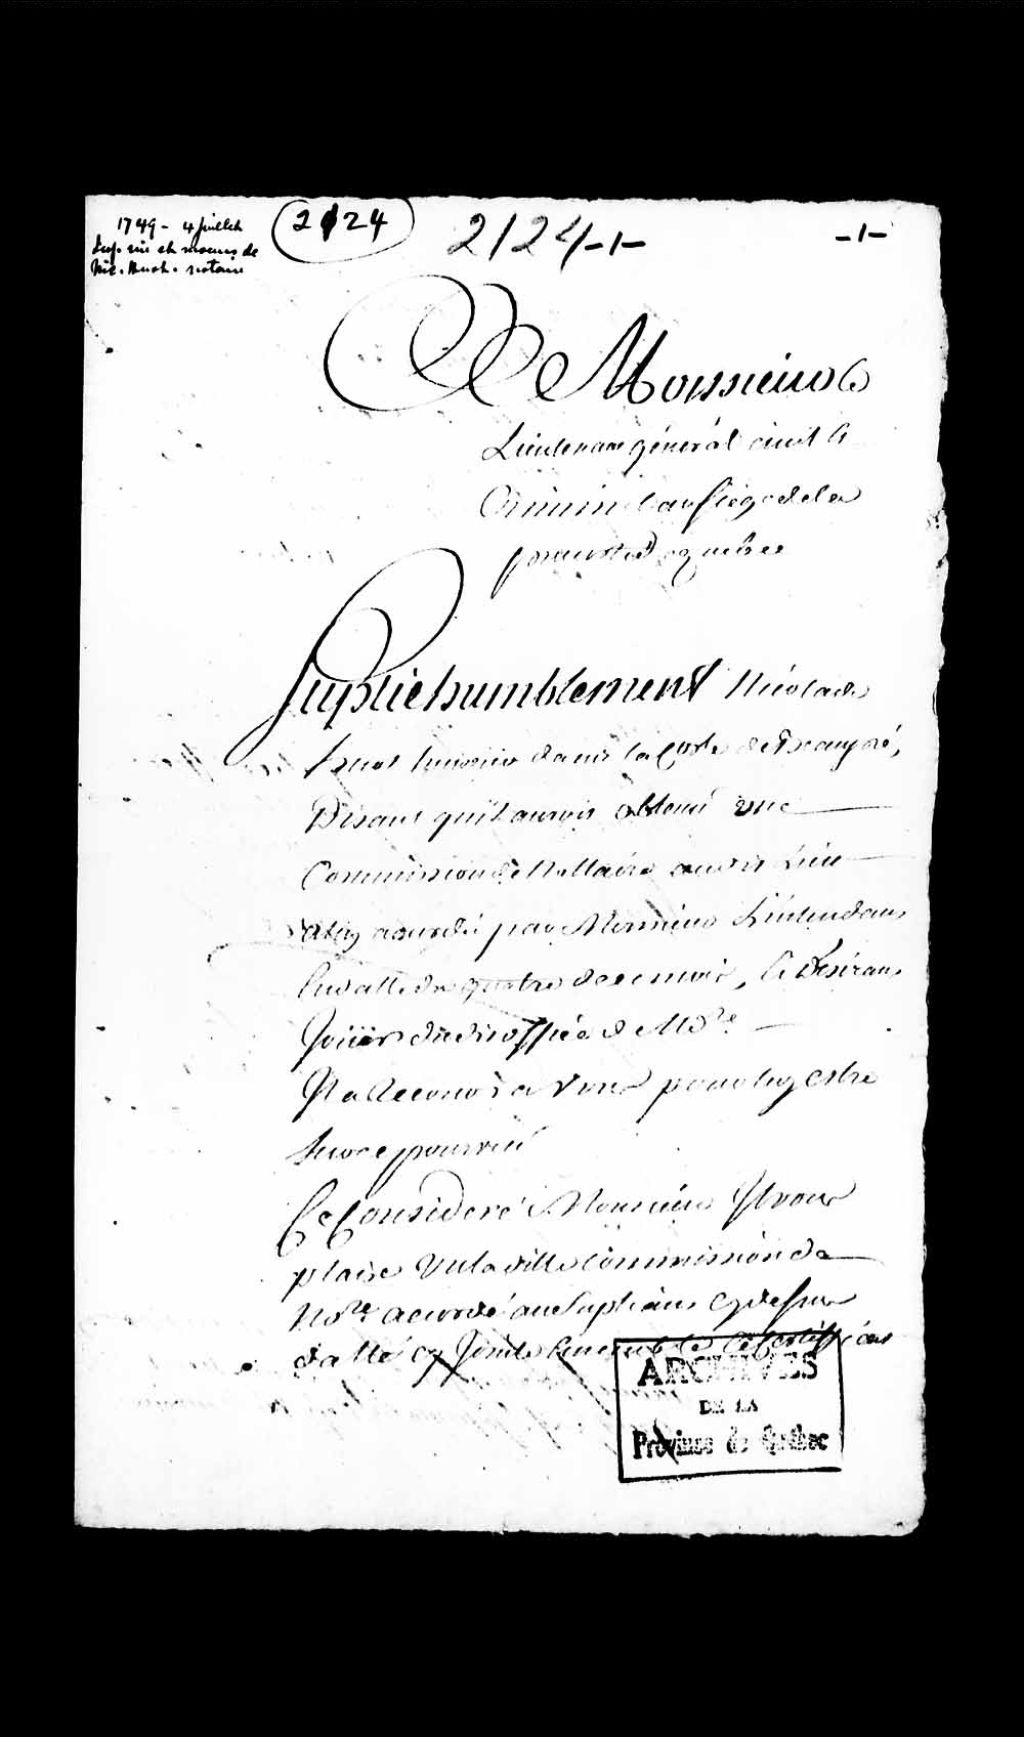 1749 - 4 juillet
Inf. vie et moeurs de
Nic. Huot. notaire
2124
2124-1-
-1-
A Monsieur le
Lieutenant général civil &
Criminel au Siege de la
prevosté de quebec
Suplie humblement Nicolas
huot huissier dans la Coste de Beaupré,
Disant qu'il auroit obtenu une
Commission de Nottaire audit Lieu
a luy accordé par Monsieur L'intendant
En datte du quatre de ce mois, & desirant
Jouir dudit office de No.re
Il a Recours a Vous pour luy estre
sur ce pourvu
Ce Consideré Monsieur Il vous
plaise Vu la ditte Commission de
No.re accordé au Supliant cy dessus
datté cy Jointe Ensemble le Certifficat
ARCHIVES
DE LA
Province de Québec